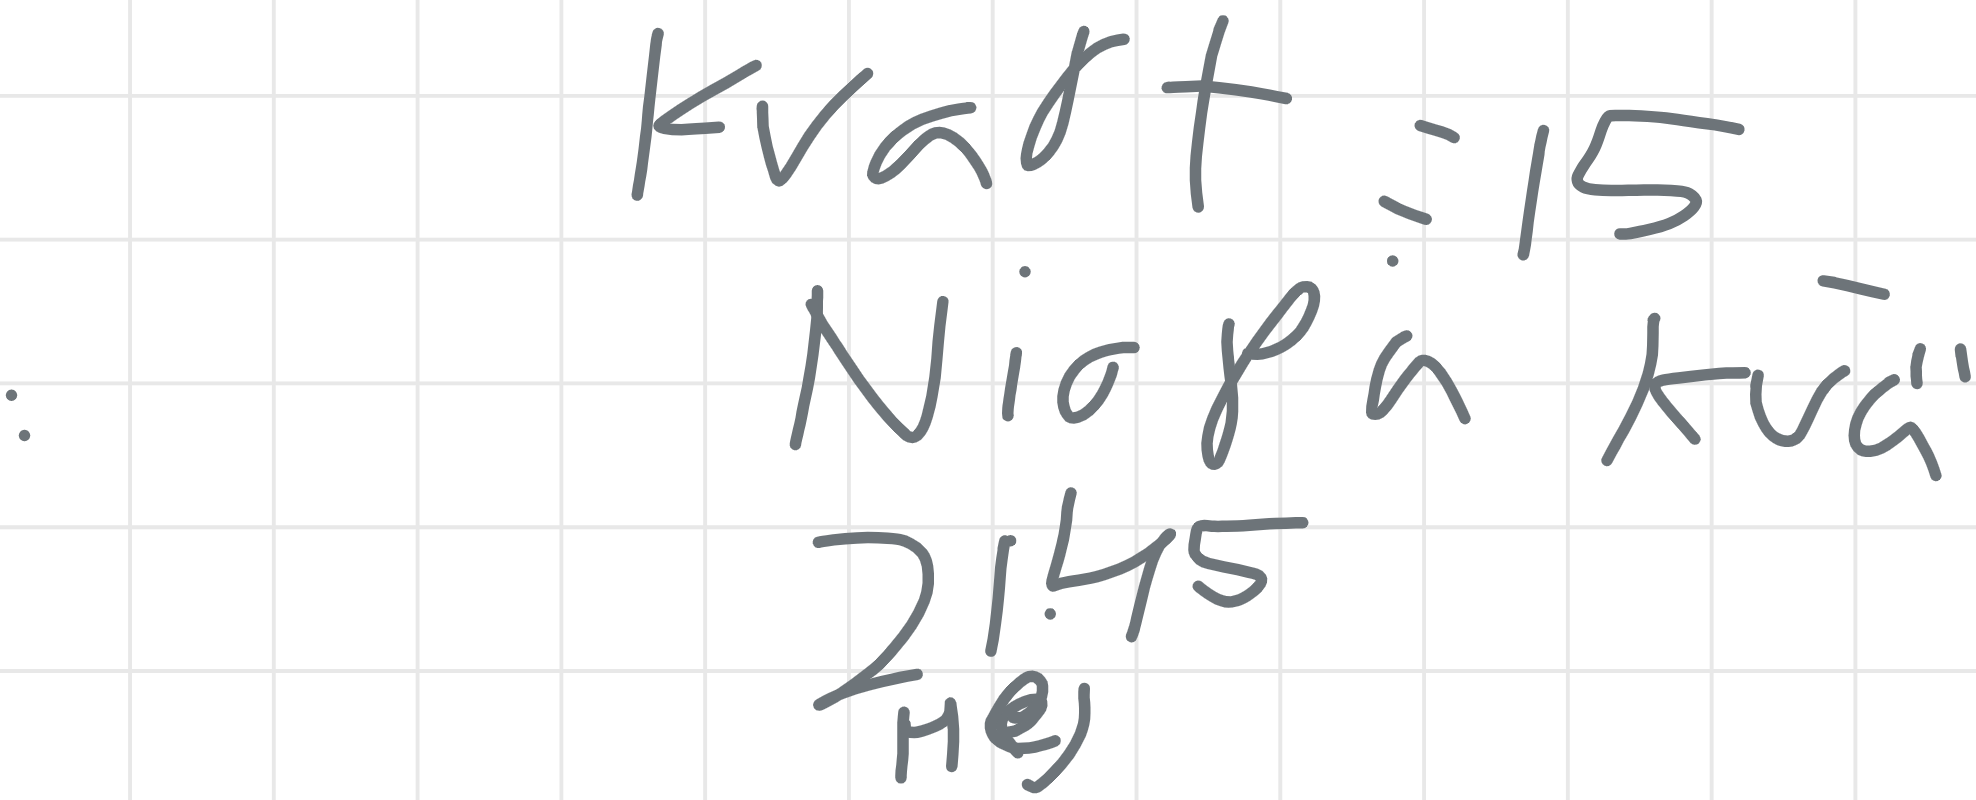 Kvart =15
Niofa kvä"
21:45
Hej